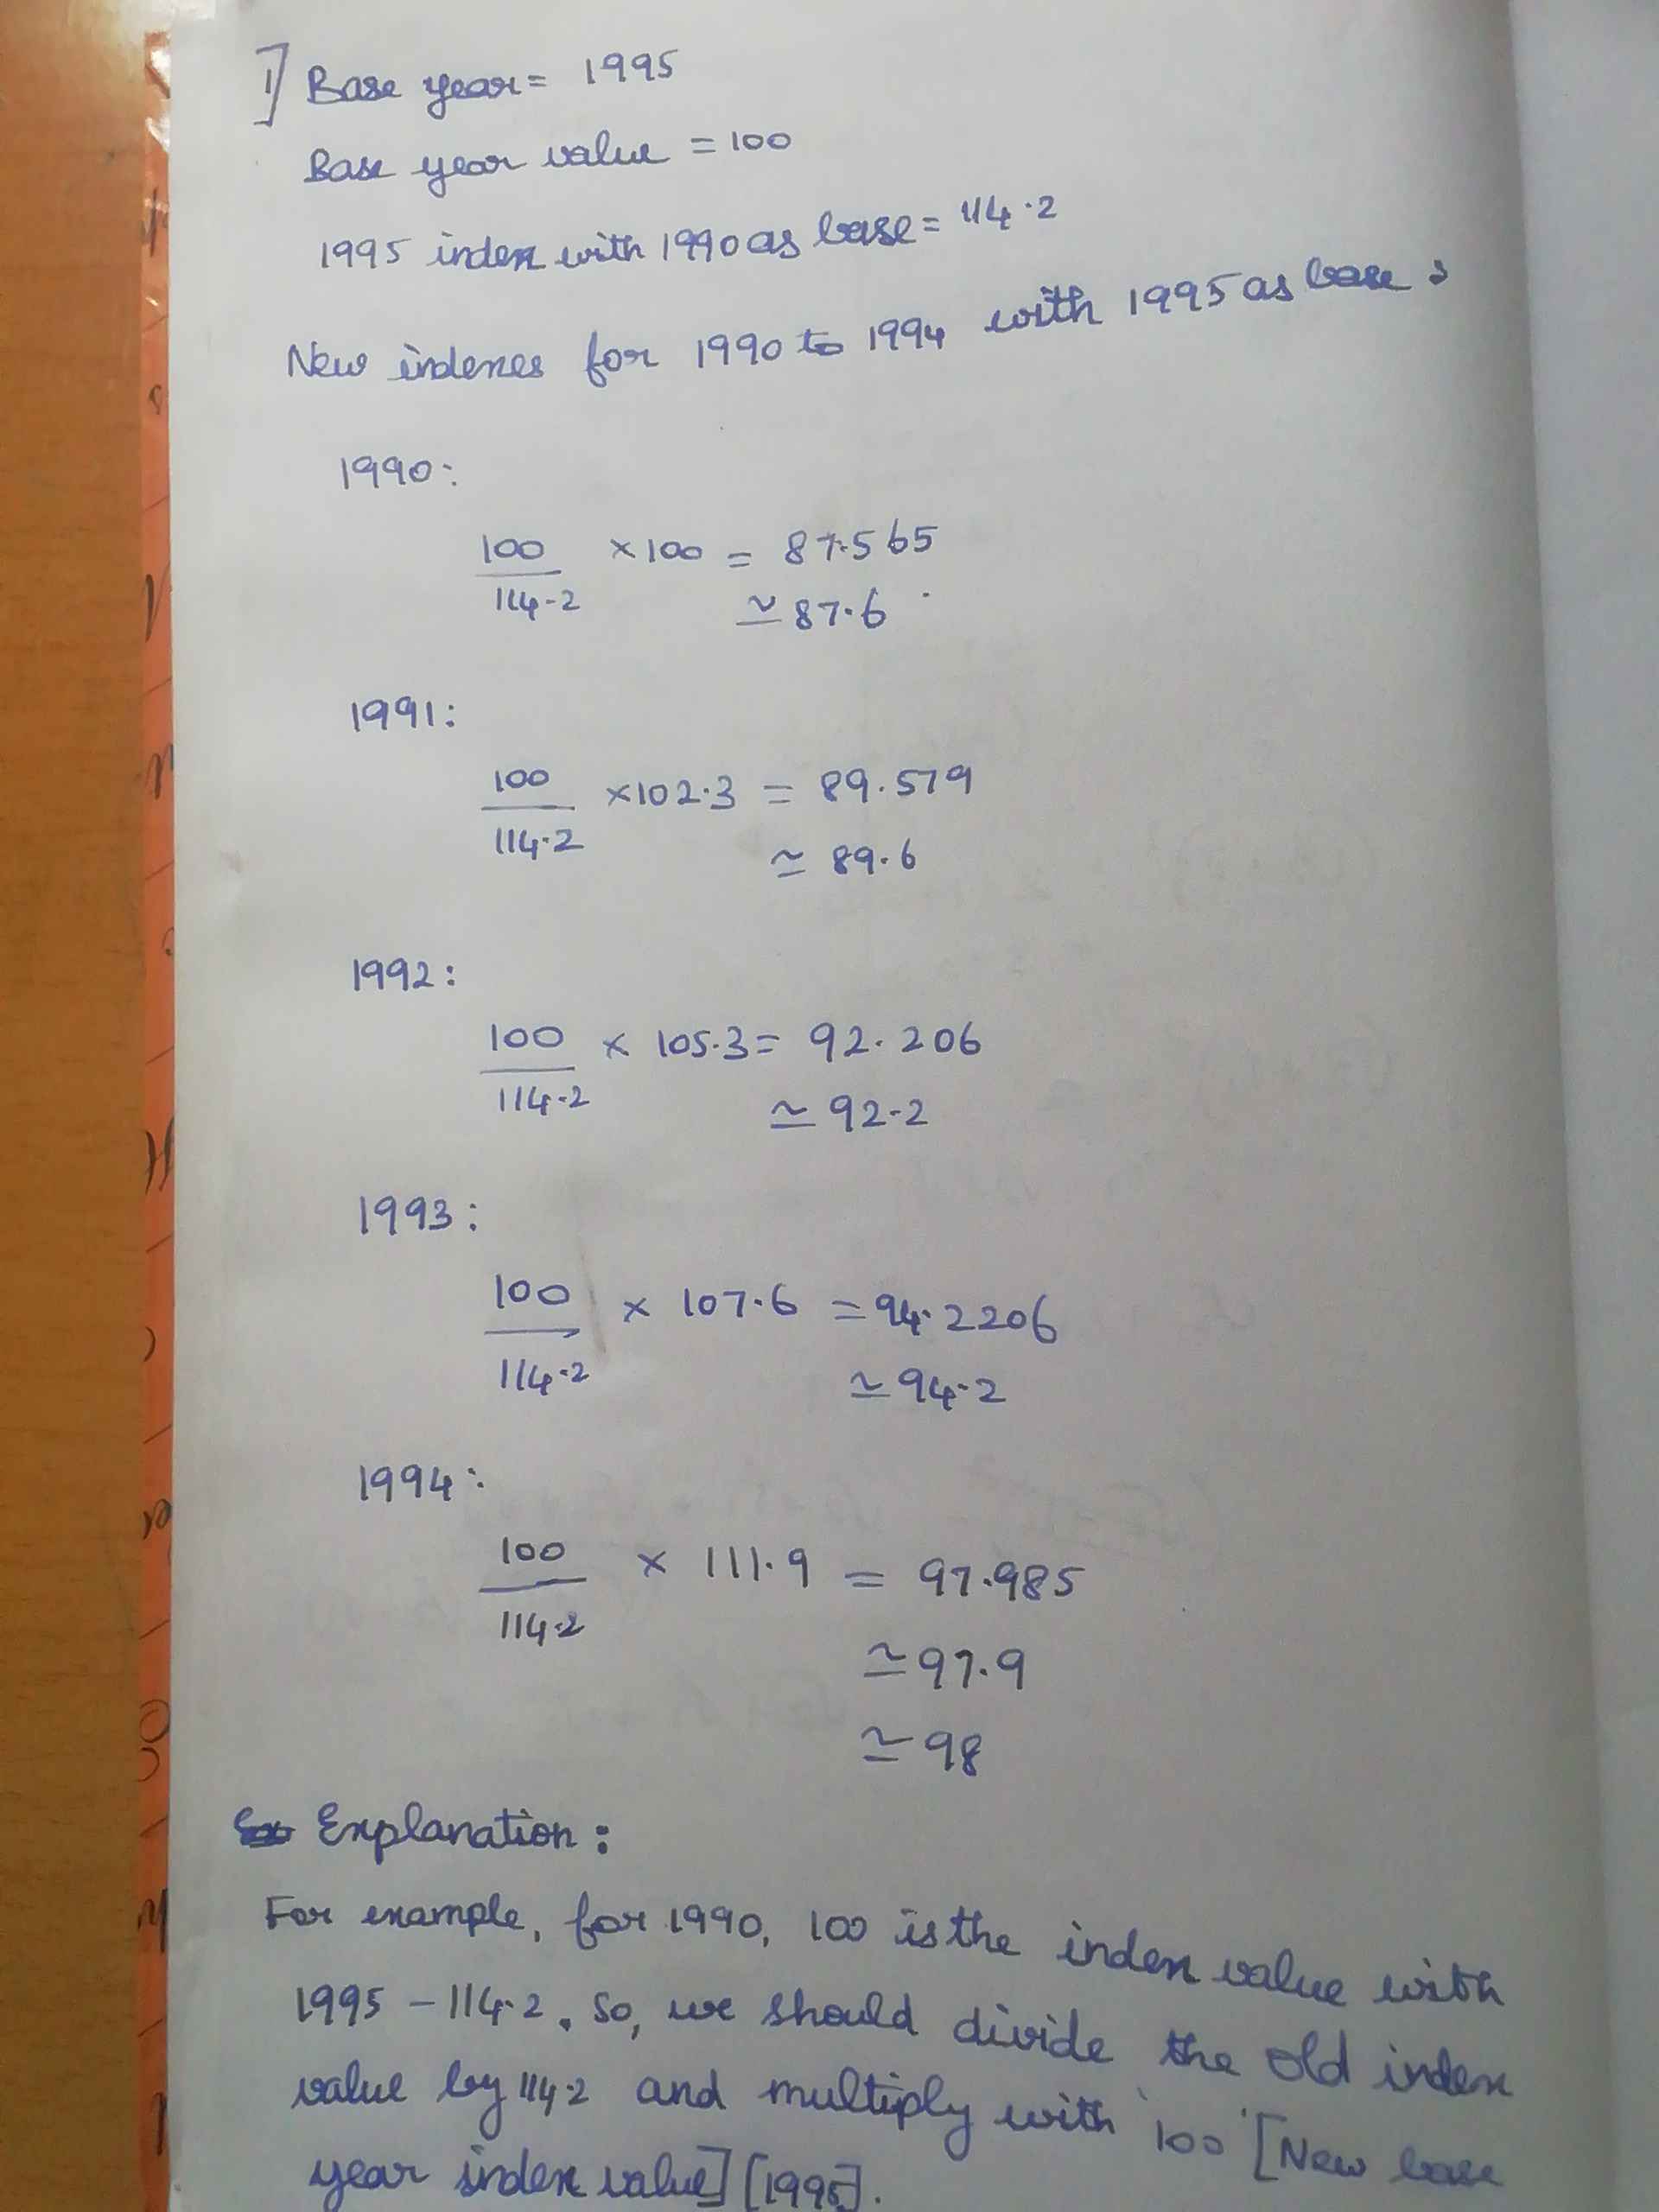 1] Base year = 1995
Base year value = 100
1995 index with 1990 as base = 114.2
New indexes for 1990 to 1994 with 1995 as base :
1990:
100/114.2 × 100 = 87.565
≃ 87.6
1991:
100/114.2 × 102.3 = 89.579
≃ 89.6
1992:
100/114.2 × 105.3 = 92.206
≃ 92.2
1993:
100/114.2 × 107.6 = 94.2206
≃ 94.2
1994:
100/114.2 × 111.9 = 97.985
≃ 97.9
≃ 98
Explanation :
For example, for 1990, 100 is the index value with
1995 - 114.2. So, we should divide the old index
value by 114.2 and multiply with '100' [New base
year index value] [1995].